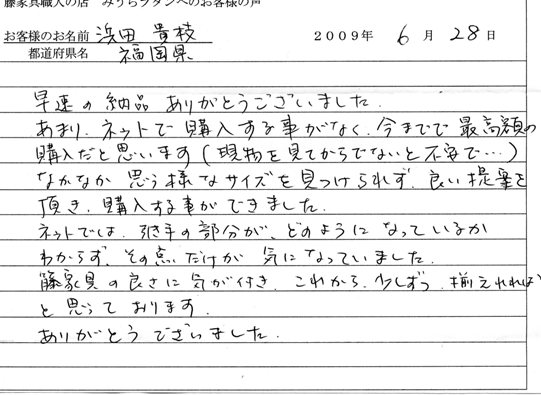 藤家具職人の店 みうらラタンへのお客様の声
お客様のお名前 浜田 貴枝 2009年 6月 28日
都道府県名 福岡県
早速の納品 ありがとうございました.
あまり、ネットで購入する事がなく、今までで最高額の
購入だと思います(現物を見てからでないと不安で…)
なかなか 思う様なサイズを見つけられず、良い提案を
頂き、購入する事ができました.
ネットでは、引き手の部分が、どのようになっているか
わからず、その点だけが 気になっていました.
籐家具の良さに気が付き、これから、少しずつ、揃えれれば
と思っております.
ありがとうございました.